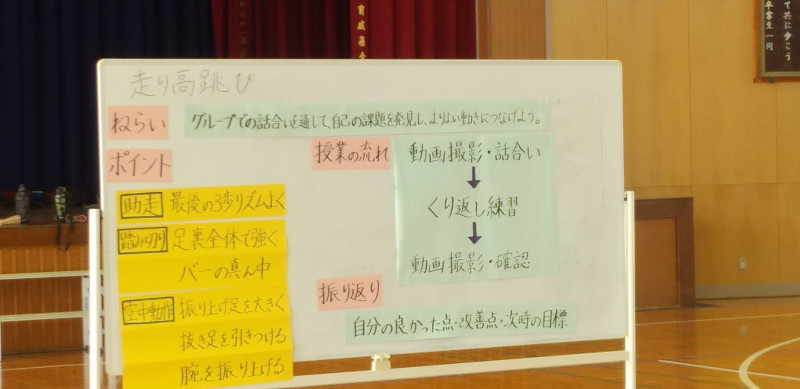 走り高跳び
ねらい
グループでの話合いを通して、自己の課題を発見し、よりよい動きにつなげよう。
ポイント
助走 最後の3歩リズムよく
踏み切り 足裏全体で強く
バーの真ん中
空中動作 振り上げ足を大きく
抜き足を引きつける
腕を振り上げる
授業の流れ
動画撮影・話合い
くり返し練習
動画撮影・確認
振り返り
自分の良かった点・改善点・次時の目標
て共に歩こう
卒業生一同